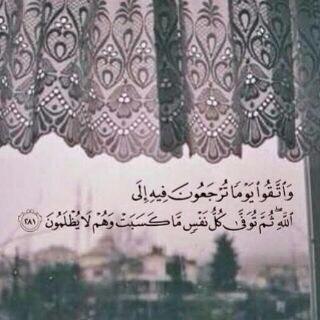 وَٱتَّقُوا۟ يَوْمًا تُرْجَعُونَ فِيهِ إِلَى
ٱللَّهِ ۖ ثُمَّ تُوَفَّىٰ كُلُّ نَفْسٍ مَّا كَسَبَتْ وَهُمْ لَا يُظْلَمُونَ ٢٨١